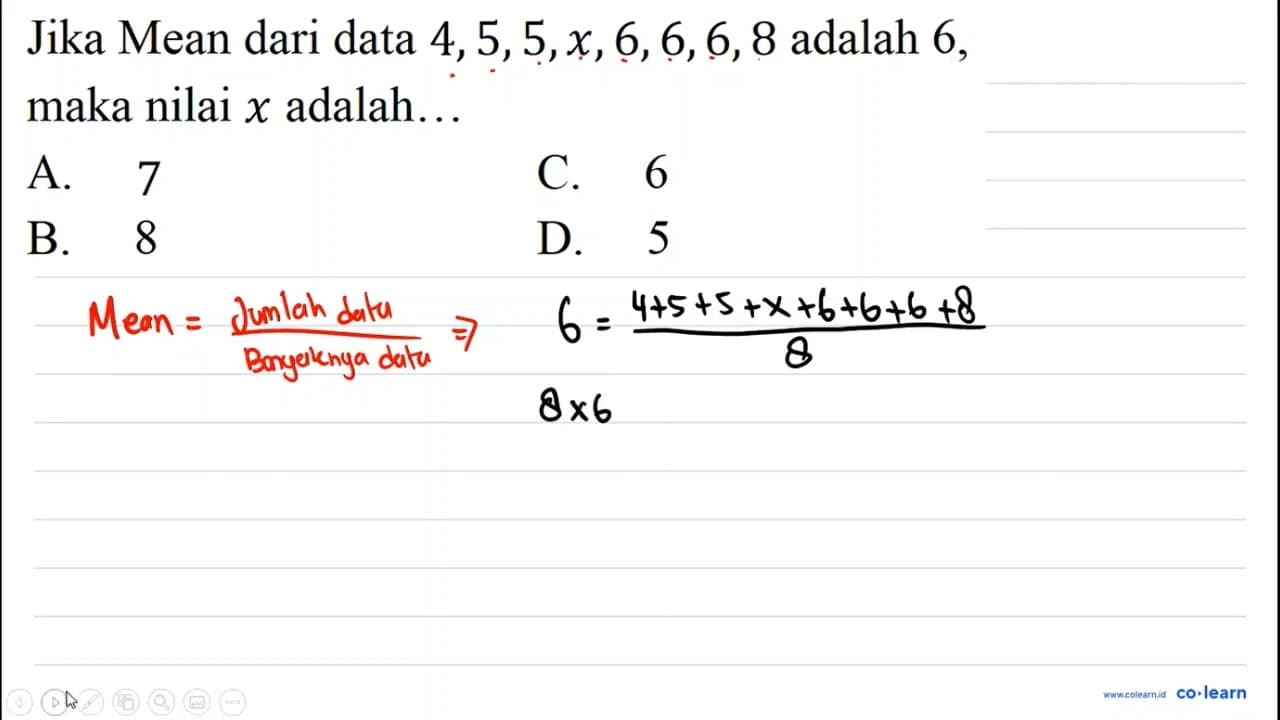 Jika Mean dari data 4, 5, 5, x, 6, 6, 6, 8 adalah 6,
maka nilai x adalah...
A. 7
C. 6
B. 8
D. 5
Mean = Jumlah data / Banyaknya data ⇒ 6 = 4+5+5+x+6+6+6+8 / 8
8×6
www.colearn.id co·learn